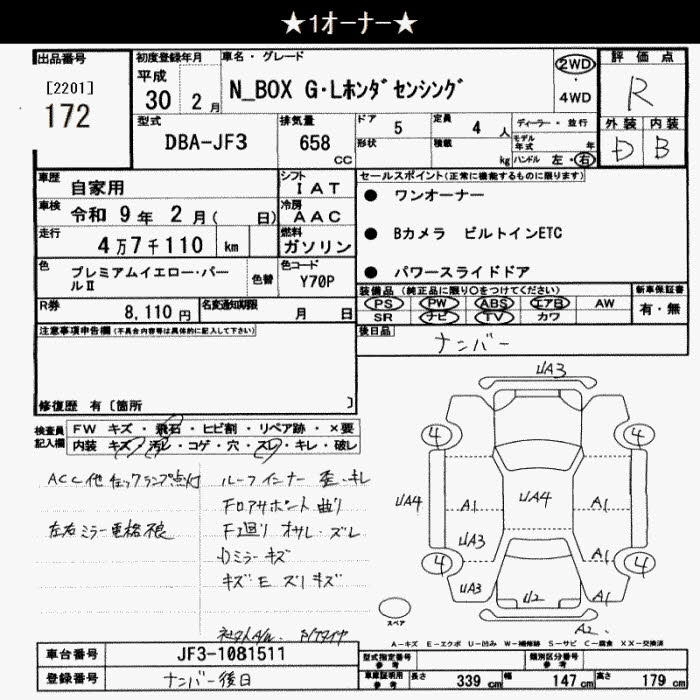 ★1オーナー★
出品番号
[2201]
172
初度登録年月
平成
30 2 月
車名・グレード
N_BOX G・Lホンダセンシング
2WD
・
4WD
評価点
R
外装 内装
D B
型式
DBA-JF3
排気量
658
cc
ドア
5
定員
4 人
形状
積載
kg
ディーラー・並行
モデル年式 年
ハンドル 左・右
車歴
自家用
シフト
IAT
車検
令和 9 年 2 月( 日)
冷房
AAC
走行
4 万 7 千 110 km
燃料
ガソリン
色
プレミアムイエロー・パールⅡ
色替
色コード
Y70P
R券
8,110 円
名変通知期限
月 日
セールスポイント(正常に機能するものに限ります)
● ワンオーナー
● Bカメラ ビルトインETC
● パワースライドドア
装備品(純正品に限り○をつけてください)
PS PW ABS エアB AW
SR ナビ TV カワ
新車保証書
有・無
後日品
ナンバー
注意事項申告欄(不具合内容等は具体的に記入して下さい)
修復歴 有〔箇所 〕
検査員記入欄
FW キズ・飛石・ヒビ割・リペア跡・×要
内装 キズ・汚レ・コゲ・穴・スレ・キレ・破レ
ACC他チェックランプ点灯
左右ミラー電格不良
ルーフインナー 歪・キレ
Fロアサポート曲り
F廻り オサレ・ズレ
Dミラーキズ
キズ E ズリキズ
UA3
4
4
UA4
A1
UA4
A1
UA3
A1
4
4
UA3
U2
A1
A2
スペア
A-キズ E-エクボ U-凹み W-補修跡 S-サビ C-腐食 XX-交換済
車台番号
JF3-1081511
登録番号
ナンバー後日
型式指定番号
参考
類別区分番号
参考
車庫証明用
参考
長さ
339 cm
幅
147 cm
高さ
179 cm